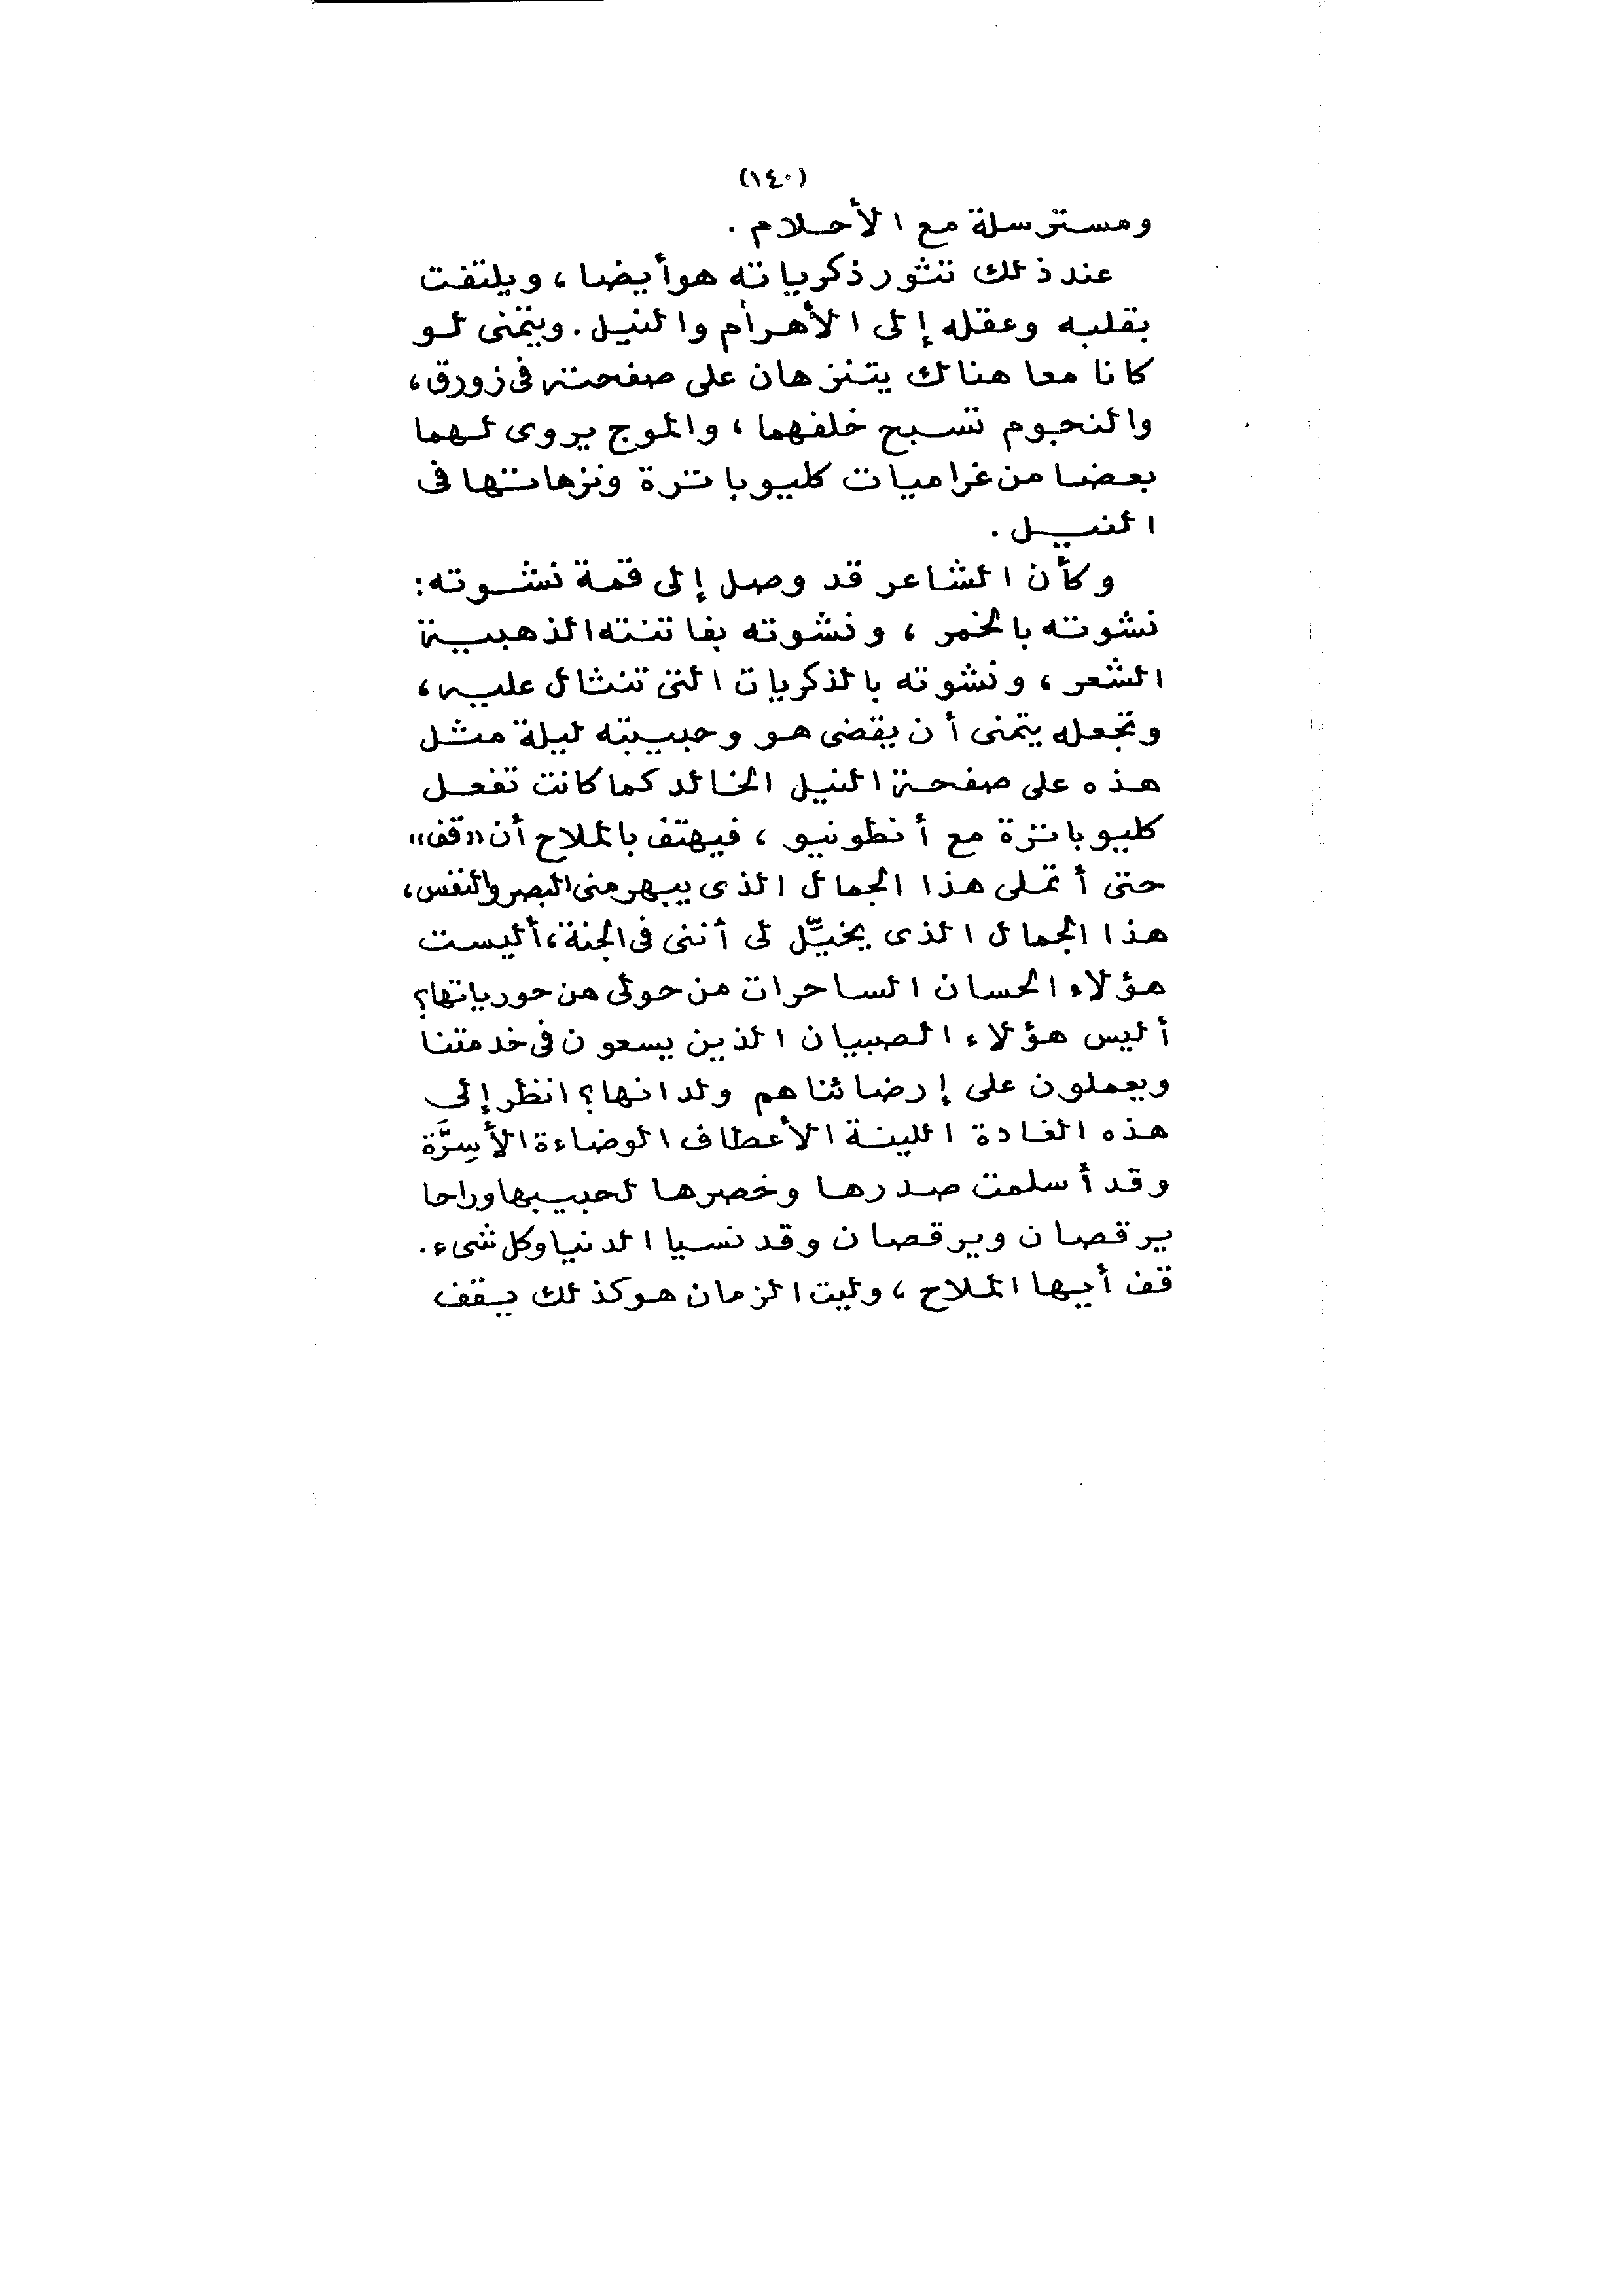 (١٤٠)
ومسترسلة مع الأحلام .
عند ذلك تثور ذكرياته هو أيضا ، ويلتفت
بقلبه وعقله إلى الأهرام والنيل . ويتمنى لو
كانا معا هناك يتنزهان على صفحته فى زورق ،
والنجوم تسبح خلفهما ، والموج يروى لهما
بعضا من غراميات كليوباترة ونزهاتها فى
النيل .
وكأن الشاعر قد وصل إلى قمة نشوته :
نشوته بالخمر ، ونشوته بفاتنته الذهبية
الشعر ، ونشوته بالذكريات التى تنثال عليه ،
وتجعله يتمنى أن يقضى هو وحبيبته ليلة مثل
هذه على صفحة النيل الخالد كما كانت تفعل
كليوباترة مع أنطونيو ، فيهتف بالملاح أن «قف»
حتى أتملى هذا الجمال الذى يبهر منى البصر والنفس ،
هذا الجمال الذى يخيِّل لى أننى فى الجنة ، أليست
هؤلاء الحسان الساحرات من حولى هن حورياتها ؟
أليس هؤلاء الصبيان الذين يسعون فى خدمتنا
ويعملون على إرضائنا هم ولدانها ؟ انظر إلى
هذه الغادة اللينة الأعطاف الوضاءة الأسِرَّة
وقد أسلمت صدرها وخصرها لحبيبها وراحا
يرقصان ويرقصان وقد نسيا الدنيا وكل شىء .
قف أيها الملاح ، وليت الزمان هو كذلك يقف